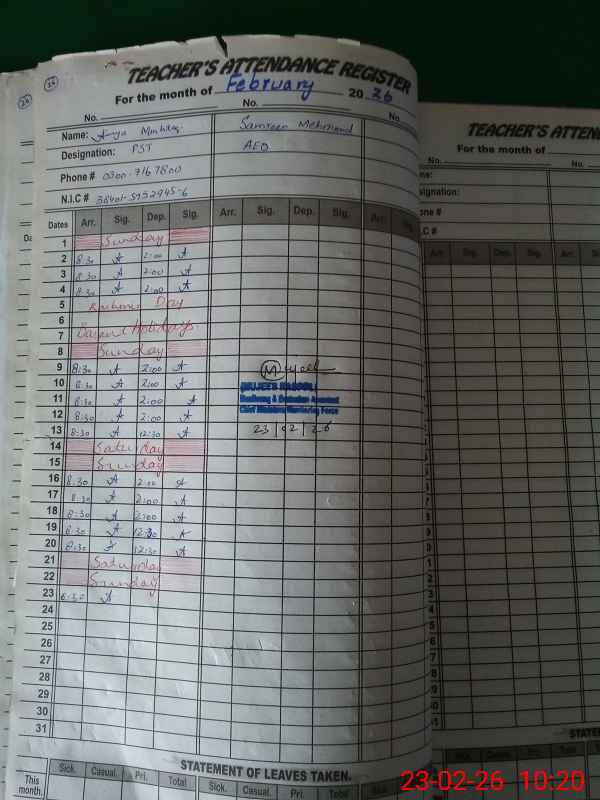 TEACHER'S ATTENDANCE REGISTER
For the month of February 2026
No. No. No.
Name: Samreen Mehmood
Designation: PST AEO
Phone # 0300-7167800
N.I.C # 38401-5752945-6
Dates Arr. Sig. Dep. Sig. Arr. Sig. Dep. Sig. Arr. Sig.
1 Sunday
2 8:30 A 2:00 A
3 8:30 A 2:00 A
4 8:30 A 2:00 A
5 Kashmir Day
6
7 Holidays
8 Sunday
9 8:30 A 2:00 A
10 8:30 A 2:00 A
11 8:30 A 2:00 A
12 8:30 A 2:00 A
13 8:30 A 12:30 A
14 Saturday
15 Sunday
16 8:30 A 2:00 A
17 8:30 A 2:00 A
18 8:30 A 2:00 A
19 8:30 A A
20 8:30 A 12:30 A
21 Saturday
22 Sunday
23 8:30 A
24
25
26
27
28
29
30
31
Monitoring & Evaluation Assistant
Monitoring Force
23/02/26
STATEMENT OF LEAVES TAKEN.
This month. Sick. Casual. Pri. Total Sick. Casual. Pri. Total Sick.
TEACHER'S ATTEN
For the month of
No. No.
me:
signation:
one #
.C #
Arr. Sig. Dep. Sig. Arr. Si
STATE
23-02-26 10:20